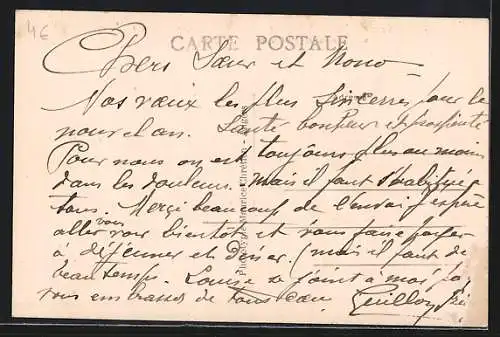 4€
CARTE POSTALE
Chers Sœur et Nono
Nos vœux les plus sincères pour le
nouvel an. Santé bonheur et prospérité
Pour nous on est toujours plus ou moins
dans les douleurs. mais il faut s'habituer
tous. Merçi beaucoup de l'envoi j'espère
aller vous voir bientot et vous faire payer
à déjeuner et diner. (mais il faut du
beau temps. Louise se joint à moi pr
vous embrasser de tout cœur